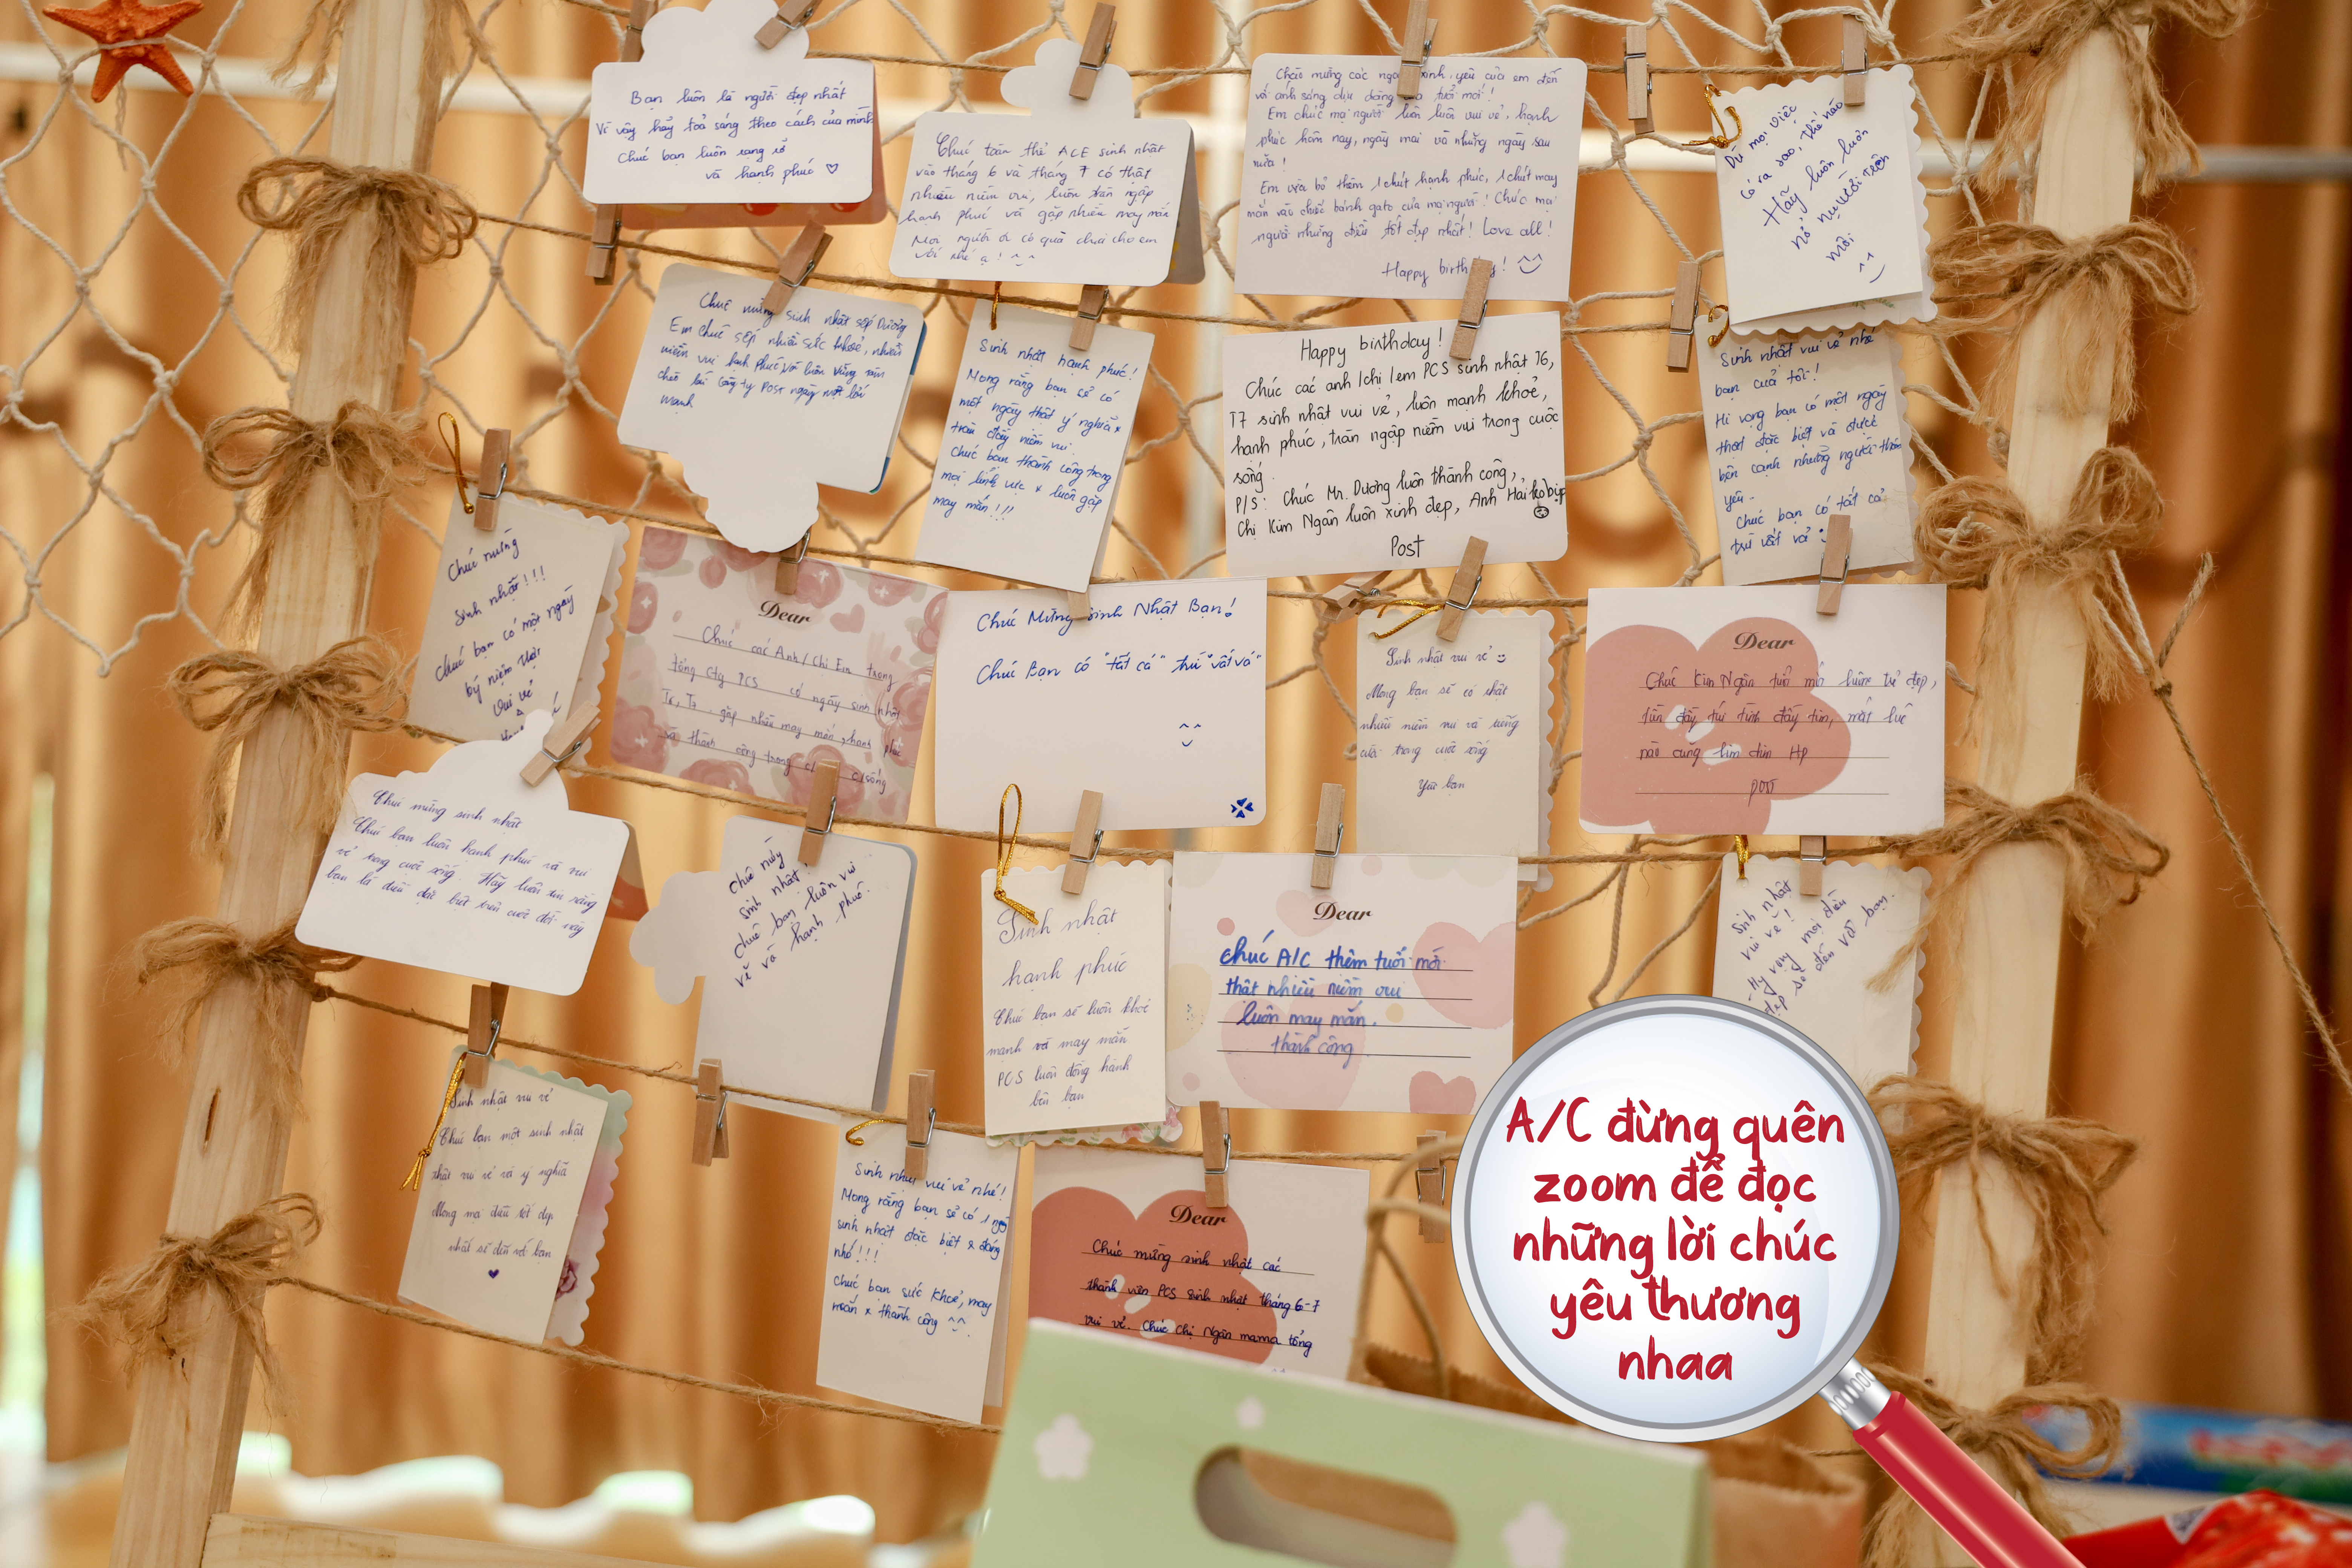 Bạn luôn là người đẹp nhất
Vì vậy hãy toả sáng theo cách của mình
Chúc bạn luôn rạng rỡ
và hạnh phúc ♡
Chúc toàn thể ACE sinh nhật
vào tháng 6 và tháng 7 có thật
nhiều niềm vui, luôn tràn ngập
hạnh phúc và gặp nhiều may mắn
Mọi người ơi có quà chia cho em
với nhé ạ! ^^
Chào mừng các xinh yêu của em đến
với ánh sáng dịu dàng của tuổi mới!
Em chúc mọi người luôn luôn vui vẻ, hạnh
phúc hôm nay, ngày mai và những ngày sau
nữa!
Em vừa bỏ thêm 1 chút hạnh phúc, 1 chút may
mắn vào chiếc bánh gato của mọi người! Chúc mọi
người những điều tốt đẹp nhất! Love all!
Happy birthday!
Dù mọi việc
có ra sao, thế nào
Hãy luôn luôn
nở nụ cười trên
môi
^^
Chúc mừng sinh nhật sếp Dương
Em chúc sếp nhiều sức khoẻ, nhiều
niềm vui hạnh phúc và luôn vững
chèo lái công ty Post ngày một lớn
mạnh
Sinh nhật hạnh phúc!
Mong rằng bạn sẽ có
một ngày thật ý nghĩa &
tràn đầy niềm vui.
Chúc bạn thành công trong
mọi lĩnh vực & luôn gặp
may mắn!!!
Happy birthday!
Chúc các anh/chị/em PCS sinh nhật T6,
T7 sinh nhật vui vẻ, luôn mạnh khoẻ,
hạnh phúc, tràn ngập niềm vui trong cuộc
sống.
P/S: Chúc Mr. Dương luôn thành công,
Chị Kim Ngân luôn xinh đẹp, Anh Hải
Post
Sinh nhật vui vẻ nhé
bạn của tôi!
Hi vọng bạn có một ngày
thật đặc biệt và được
bên cạnh những người thân
yêu.
Chúc bạn có tất cả
trừ vất vả
Chúc mừng
sinh nhật!!!
Chúc bạn có một ngày
kỷ niệm thật
vui vẻ
Dear
Chúc các Anh/Chị Em trong
tổng cty PCS có ngày sinh nhật
T6, T7 gặp nhiều may mắn, hạnh phúc
và thành công trong c/sống
Chúc Mừng Sinh Nhật Bạn!
Chúc Bạn có "tất cả" trừ "vất vả"
Sinh nhật vui vẻ
Mong bạn sẽ có thật
nhiều niềm vui và tiếng
cười trong cuộc sống
Yêu bạn
Dear
Chúc Kim Ngân tuổi mới luôn trẻ đẹp,
tiền đầy túi tình đầy tim, mọi lúc
nào cũng HP
POST
Chúc mừng sinh nhật
Chúc bạn luôn hạnh phúc và vui
vẻ trong cuộc sống. Hãy luôn tin rằng
bạn là điều đặc biệt trên cuộc đời này
Chúc mừng
sinh nhật!
chúc bạn luôn vui
vẻ và hạnh phúc.
Sinh nhật
hạnh phúc
Chúc bạn sẽ luôn khoẻ
mạnh và may mắn
PCS luôn đồng hành
bên bạn
Dear
Chúc A/C thêm tuổi mới
thật nhiều niềm vui
luôn may mắn.
thành công
Sinh nhật
vui vẻ!
Hy vọng mọi điều
đẹp sẽ đến với bạn.
Sinh nhật vui vẻ
Chúc bạn một sinh nhật
thật vui vẻ và ý nghĩa
Mong mọi điều tốt đẹp
nhất sẽ đến với bạn
Sinh nhật vui vẻ nhé!
Mong rằng bạn sẽ có 1 ngày
sinh nhật đặc biệt & đáng
nhớ!!!
Chúc bạn sức khoẻ, may
mắn & thành công ^^
Dear
Chúc mừng sinh nhật các
thành viên PCS sinh nhật tháng 6-7
vui vẻ. Chúc chị Ngân mama tổng
A/C đừng quên
zoom để đọc
những lời chúc
yêu thương
nhaa